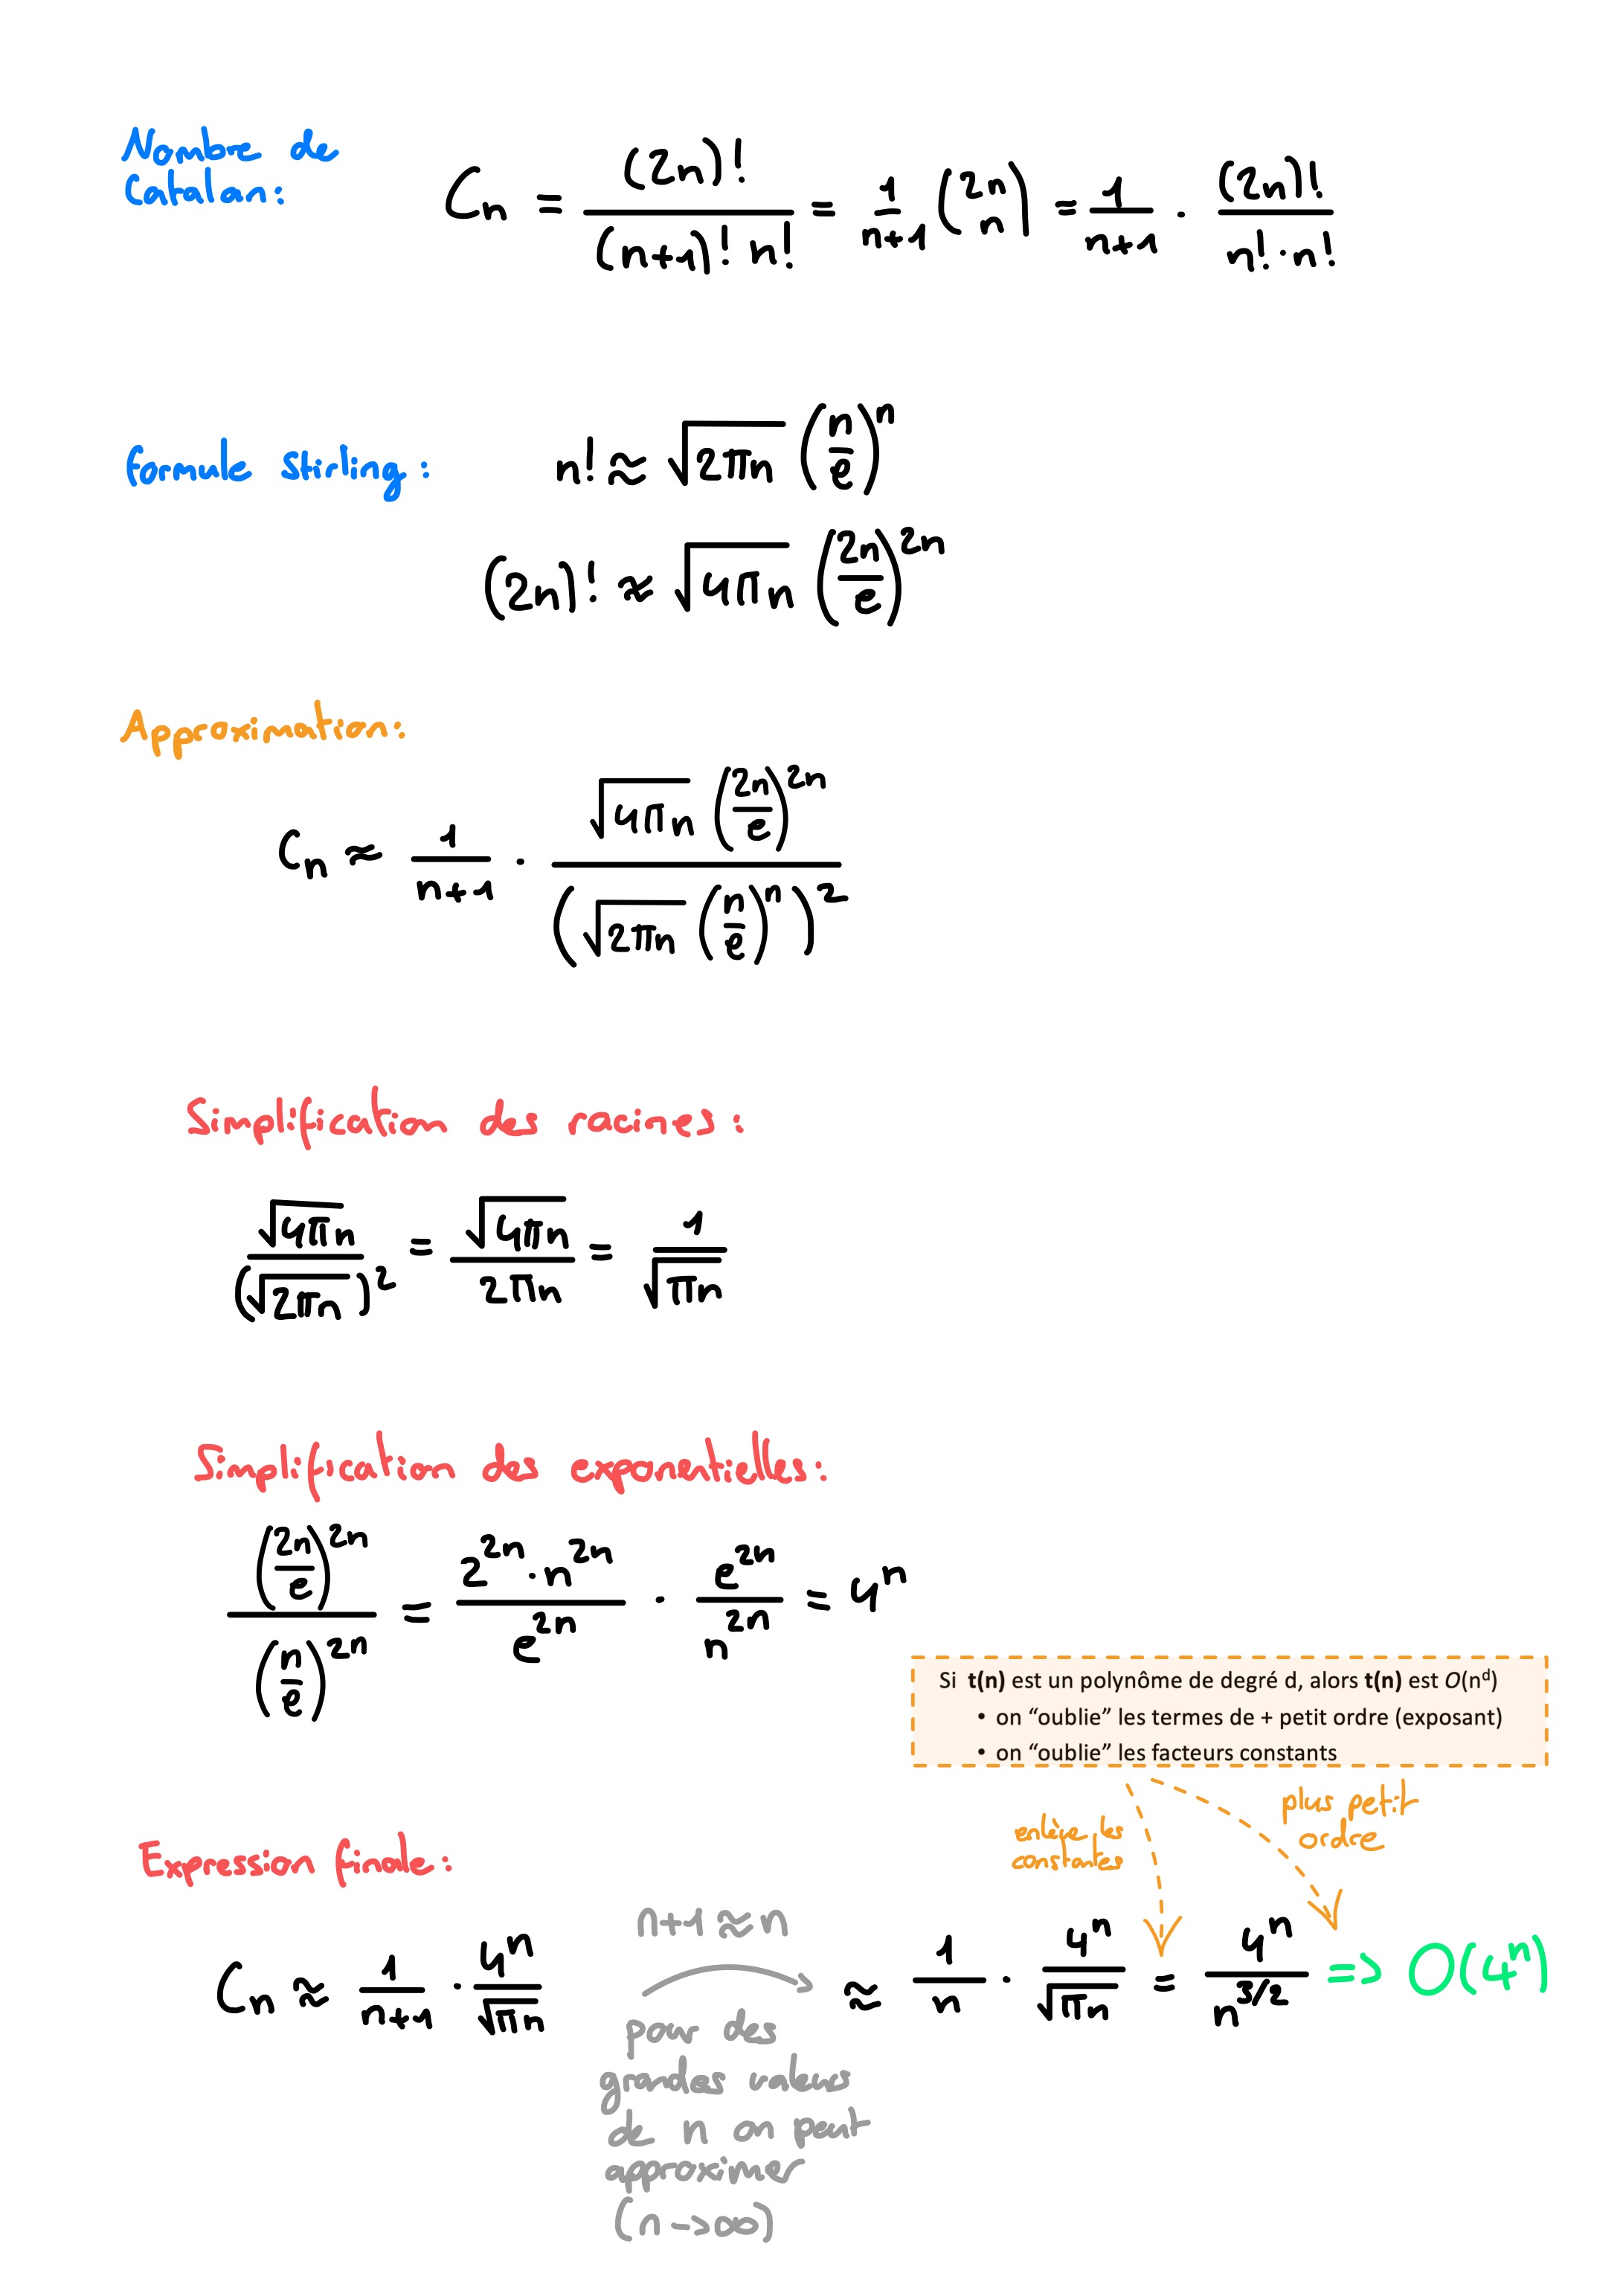 Nombre de
Catalan:
Cn = (2n)! / ((n+1)! n!) = 1/(n+1) (2n n) = 1/(n+1) · (2n)! / (n! · n!)
formule Stirling:
n! ≈ √(2πn) (n/e)^n
(2n)! ≈ √(4πn) (2n/e)^2n
Approximation:
Cn ≈ 1/(n+1) · √(4πn) (2n/e)^2n / (√(2πn) (n/e)^n)^2
Simplification des racines:
√(4πn) / (√(2πn))^2 = √(4πn) / 2πn = 1/√(πn)
Simplification des exponentielles:
(2n/e)^2n / (n/e)^2n = 2^2n · n^2n / e^2n · e^2n / n^2n = 4^n
Si t(n) est un polynôme de degré d, alors t(n) est O(n^d)
• on “oublie” les termes de + petit ordre (exposant)
• on “oublie” les facteurs constants
enlève les
constantes
plus petit
ordre
Expression finale:
Cn ≈ 1/(n+1) · 4^n/√(πn)
n+1 ≈ n
pour des
grandes valeurs
de n on peut
approximer
(n->∞)
≈ 1/n · 4^n/√(πn) = 4^n / n^3/2 => O(4^n)